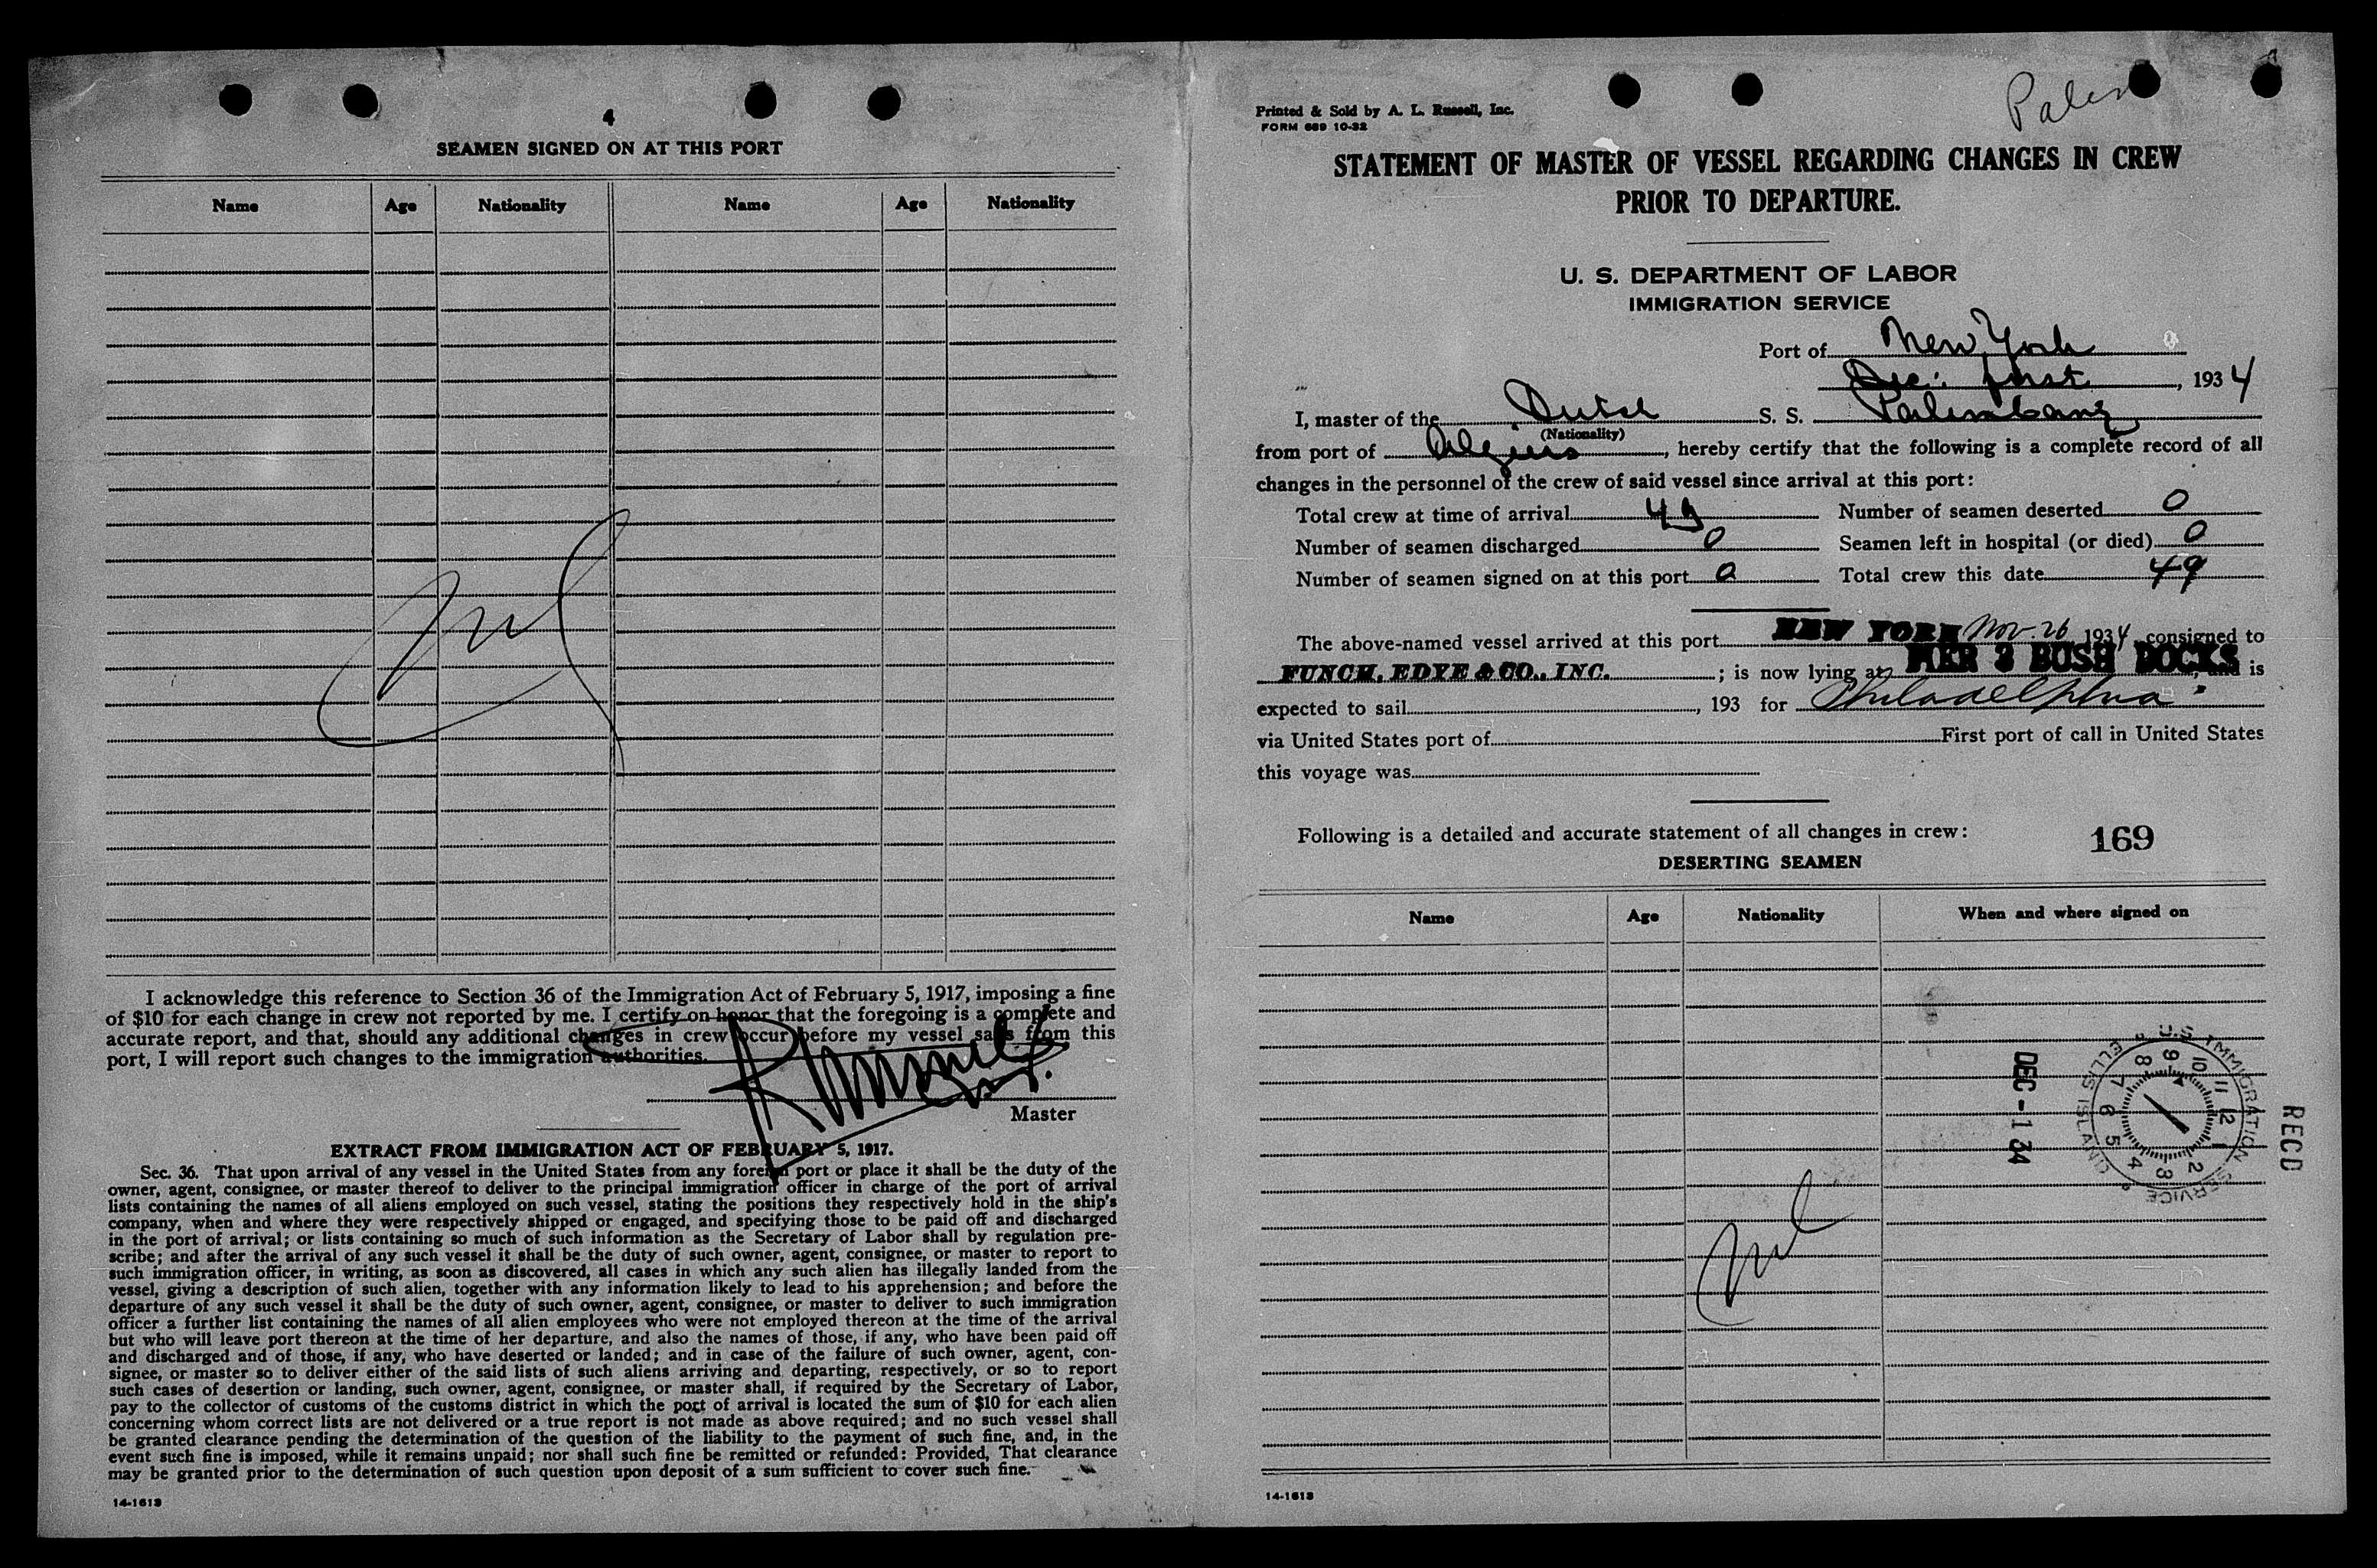 4
SEAMEN SIGNED ON AT THIS PORT
Name Age Nationality Name Age Nationality
Nil
I acknowledge this reference to Section 36 of the Immigration Act of February 5, 1917, imposing a fine
of $10 for each change in crew not reported by me. I certify on honor that the foregoing is a complete and
accurate report, and that, should any additional changes in crew occur before my vessel sails from this
port, I will report such changes to the immigration authorities.
Master
EXTRACT FROM IMMIGRATION ACT OF FEBRUARY 5, 1917.
Sec. 36. That upon arrival of any vessel in the United States from any foreign port or place it shall be the duty of the
owner, agent, consignee, or master thereof to deliver to the principal immigration officer in charge of the port of arrival
lists containing the names of all aliens employed on such vessel, stating the positions they respectively hold in the ship's
company, when and where they were respectively shipped or engaged, and specifying those to be paid off and discharged
in the port of arrival; or lists containing so much of such information as the Secretary of Labor shall by regulation pre-
scribe; and after the arrival of any such vessel it shall be the duty of such owner, agent, consignee, or master to report to
such immigration officer, in writing, as soon as discovered, all cases in which any such alien has illegally landed from the
vessel, giving a description of such alien, together with any information likely to lead to his apprehension; and before the
departure of any such vessel it shall be the duty of such owner, agent, consignee, or master to deliver to such immigration
officer a further list containing the names of all alien employees who were not employed thereon at the time of the arrival
but who will leave port thereon at the time of her departure, and also the names of those, if any, who have been paid off
and discharged and of those, if any, who have deserted or landed; and in case of the failure of such owner, agent, con-
signee, or master so to deliver either of the said lists of such aliens arriving and departing, respectively, or so to report
such cases of desertion or landing, such owner, agent, consignee, or master shall, if required by the Secretary of Labor,
pay to the collector of customs of the customs district in which the port of arrival is located the sum of $10 for each alien
concerning whom correct lists are not delivered or a true report is not made as above required; and no such vessel shall
be granted clearance pending the determination of the question of the liability to the payment of such fine, and, in the
event such fine is imposed, while it remains unpaid; nor shall such fine be remitted or refunded: Provided, That clearance
may be granted prior to the determination of such question upon deposit of a sum sufficient to cover such fine.
14-1613
Printed & Sold by A. L. Russell, Inc.
FORM 689 10-32
Palem
STATEMENT OF MASTER OF VESSEL REGARDING CHANGES IN CREW
PRIOR TO DEPARTURE.
U. S. DEPARTMENT OF LABOR
IMMIGRATION SERVICE
Port of New York
Dec: first, 1934
I, master of the Dutch S. S. Palembang
(Nationality)
from port of Algiers, hereby certify that the following is a complete record of all
changes in the personnel of the crew of said vessel since arrival at this port:
Total crew at time of arrival 49 Number of seamen deserted 0
Number of seamen discharged 0 Seamen left in hospital (or died) 0
Number of seamen signed on at this port 0 Total crew this date 49
The above-named vessel arrived at this port NEW YORK Nov. 26 1934, consigned to
FUNCH, EDYE & CO., INC. ; is now lying at PIER 3 BUSH DOCKS, and is
expected to sail, 193 for Philadelphia
via United States port of First port of call in United States
this voyage was
Following is a detailed and accurate statement of all changes in crew: 169
DESERTING SEAMEN
Name Age Nationality When and where signed on
RECD
U.S. IMMIGRATION SERVICE ELLIS ISLAND
1 2 3 4 5 6 7 8 9 10 11 12
DEC -1 34
Nil
14-1613